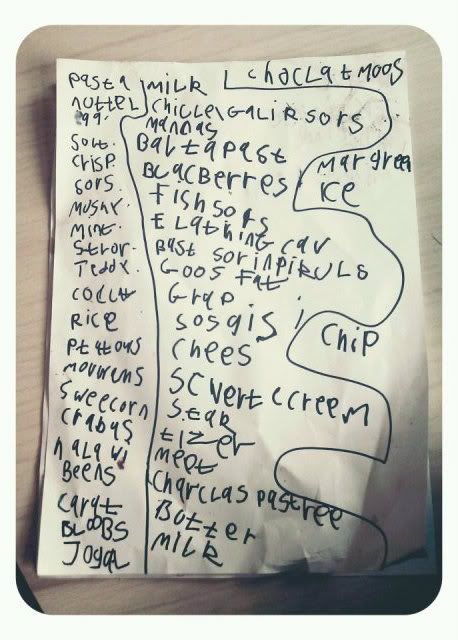 pasta
nuttel
Solt.
crisp.
sors
mushr.
mint.
Stror.
Teddy.
Rice
pttous
sweecorn
crabas
halawi
Beens
carat
BLOOBS
Jogal
MILK
chiccel GALIRSORS
MANNAS
BALTAPAST
BLACBERRES
FISHSORS
ELATHING CAV
BAST SORINPIRULS
GOOS FAT
GRAP
sosgis
chees
SCVERTCCREEM
STAR
tizer
meet
charclas pastree
Botter
MILK
chacLatmoos
margreen
RCE
chip